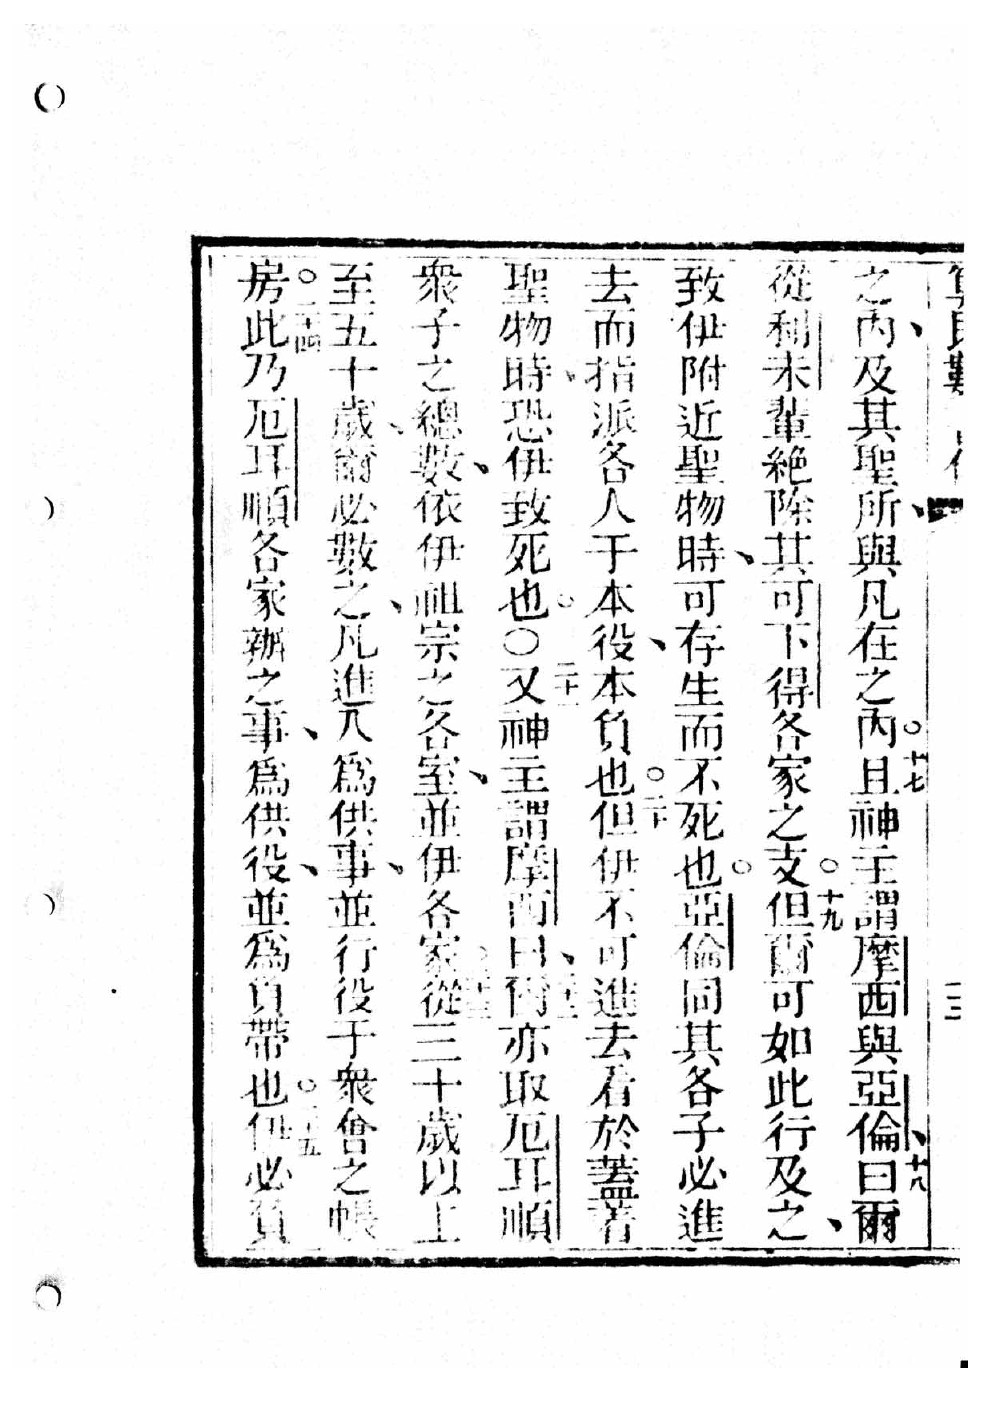 之內及其聖所與凡在之內。十七且神主謂摩西與亞倫曰、十八爾
從利未輩絕除其可下得各家之支。十九但爾可如此行及之、
致伊附近聖物時、可存生而不死也。亞倫同其各子必進
去而指派各人于本役、本負也。二十但伊不可進去看於蓋著
聖物時、恐伊致死也。○二十一又神主謂摩西曰、二十二爾亦取厄耳順
衆子之總數、依伊祖宗之各室、並伊各家。二十三從三十歲以上
至五十歲、爾必數之、凡進入爲供事、並行役于衆會之帳
房。二十四此乃厄耳順各家辦之事、爲供役、並爲負帶也。二十五伊必負